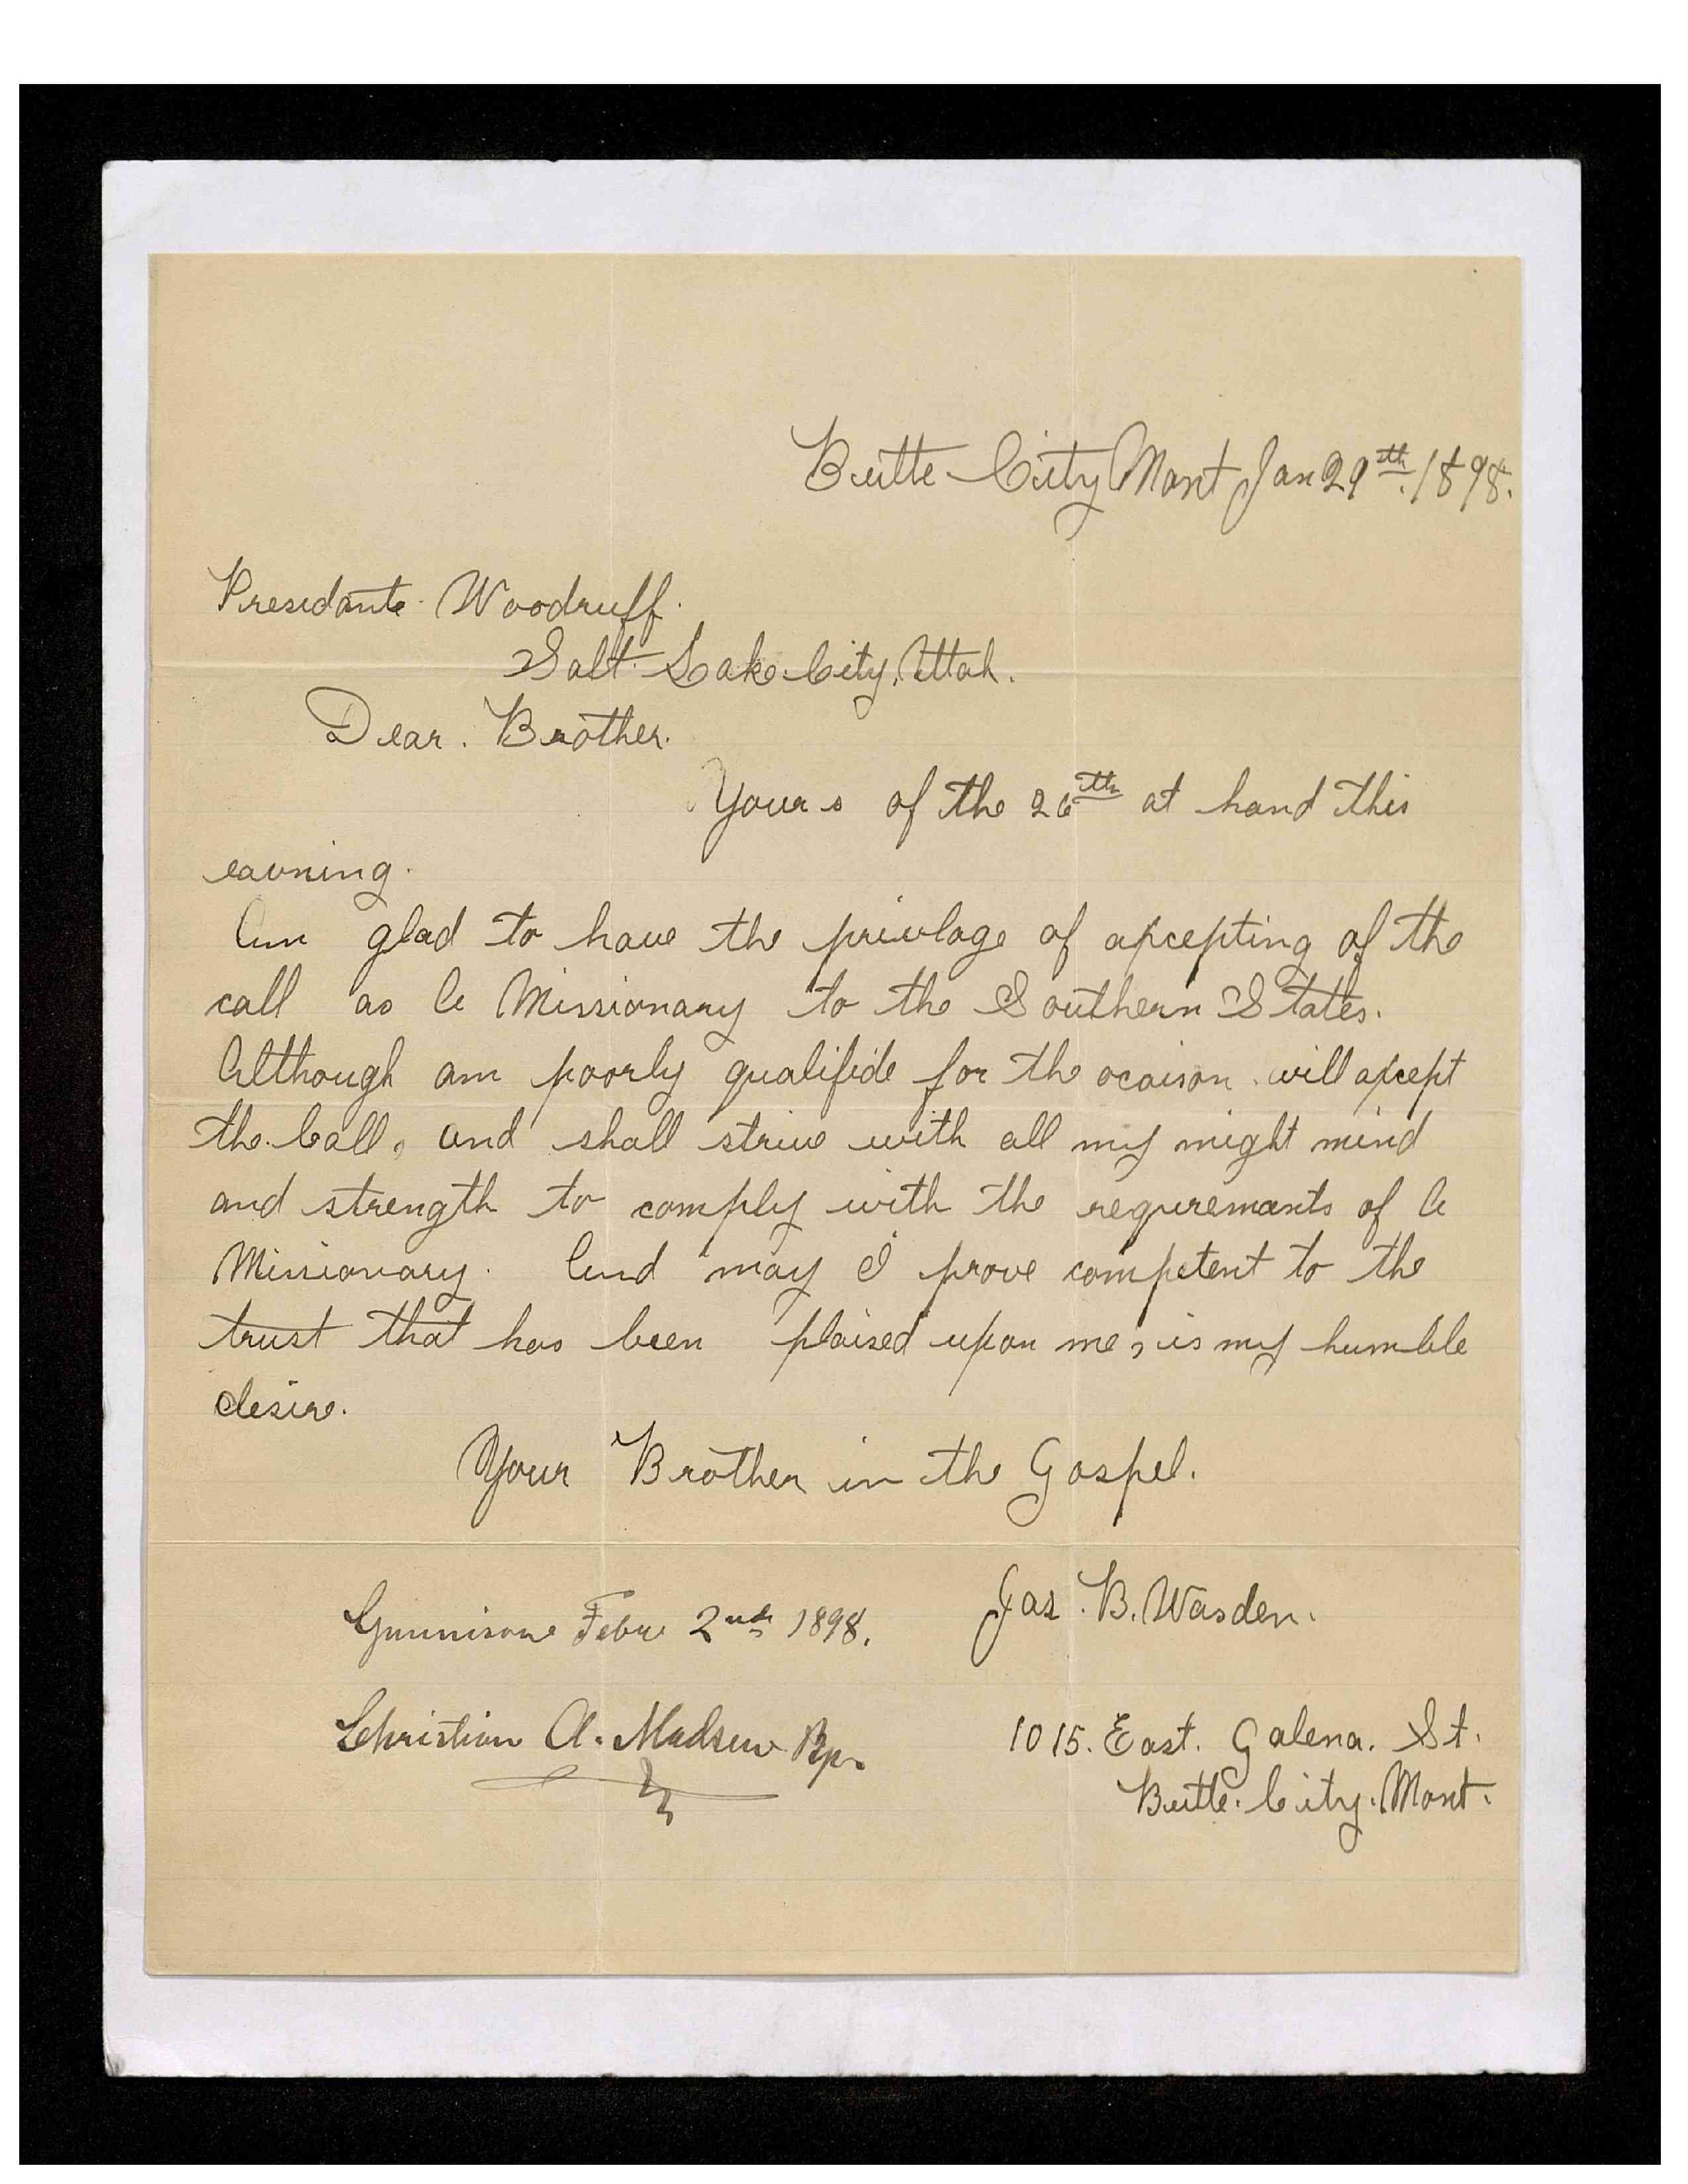 Butte City Mont Jan 29th. 1898.
Presedante Woodruff.
Salt Lake City, Uttah.
Dear. Brother.
Yours of the 26th at hand this
eavning.
Am glad to have the privlage of apcepting of the
call as A Missionary to the Southern States.
Although am poorly qualifide for the ocaison. will apcept
the Call, and shall strive with all my might mind
and strength to comply with the requremants of A
Missionary. And may I prove competent to the
trust that has been plaised upon me, is my humble
desire.
Your Brother in the Gospel.
Jas. B. Wasden.
Gunnison Febr 2nd 1898.
Christian A. Madsen Bp.
1015. East. Galena. St.
Butte. City. Mont.